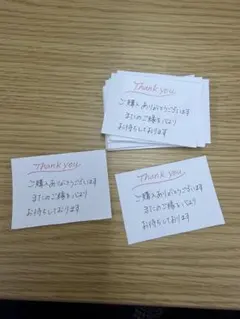 Thank you
ご購入ありがとうございます
またのご縁を心より
お待ちしております
Thank you
ご購入ありがとうございます
またのご縁を心より
お待ちしております
Thank you
ご購入ありがとうございます
またのご縁を心より
お待ちしております